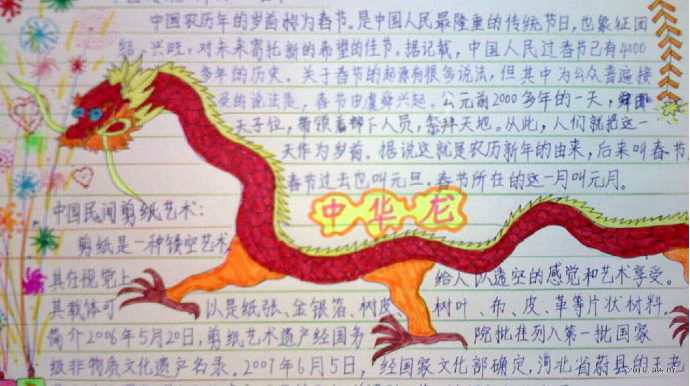 中国农历年的岁首称为春节。是中国人民最隆重的传统节日，也象征团
结、兴旺，对未来寄托新的希望的佳节。据记载，中国人民过春节已有4000
多年的历史。关于春节的起源有很多说法，但其中为公众普遍接
受的说法是，春节由虞舜兴起。公元前2000多年的一天，舜即
天子位，带领着部下人员，祭拜天地。从此，人们就把这一
天作为岁首。据说这就是农历新年的由来，后来叫春节
春节过去也叫元旦。春节所在的这一月叫元月。
中华龙
中国民间剪纸艺术：
剪纸是一种镂空艺术
其在视觉上 给人以透空的感觉和艺术享受。
其载体可 以是纸张、金银箔、树皮、树叶、布、皮、革等片状材料。
简介2006年5月20日，剪纸艺术遗产经国务 院批准列入第一批国家
级非物质文化遗产名录。2007年6月5日，经国家文化部确定，河北省蔚县的王老